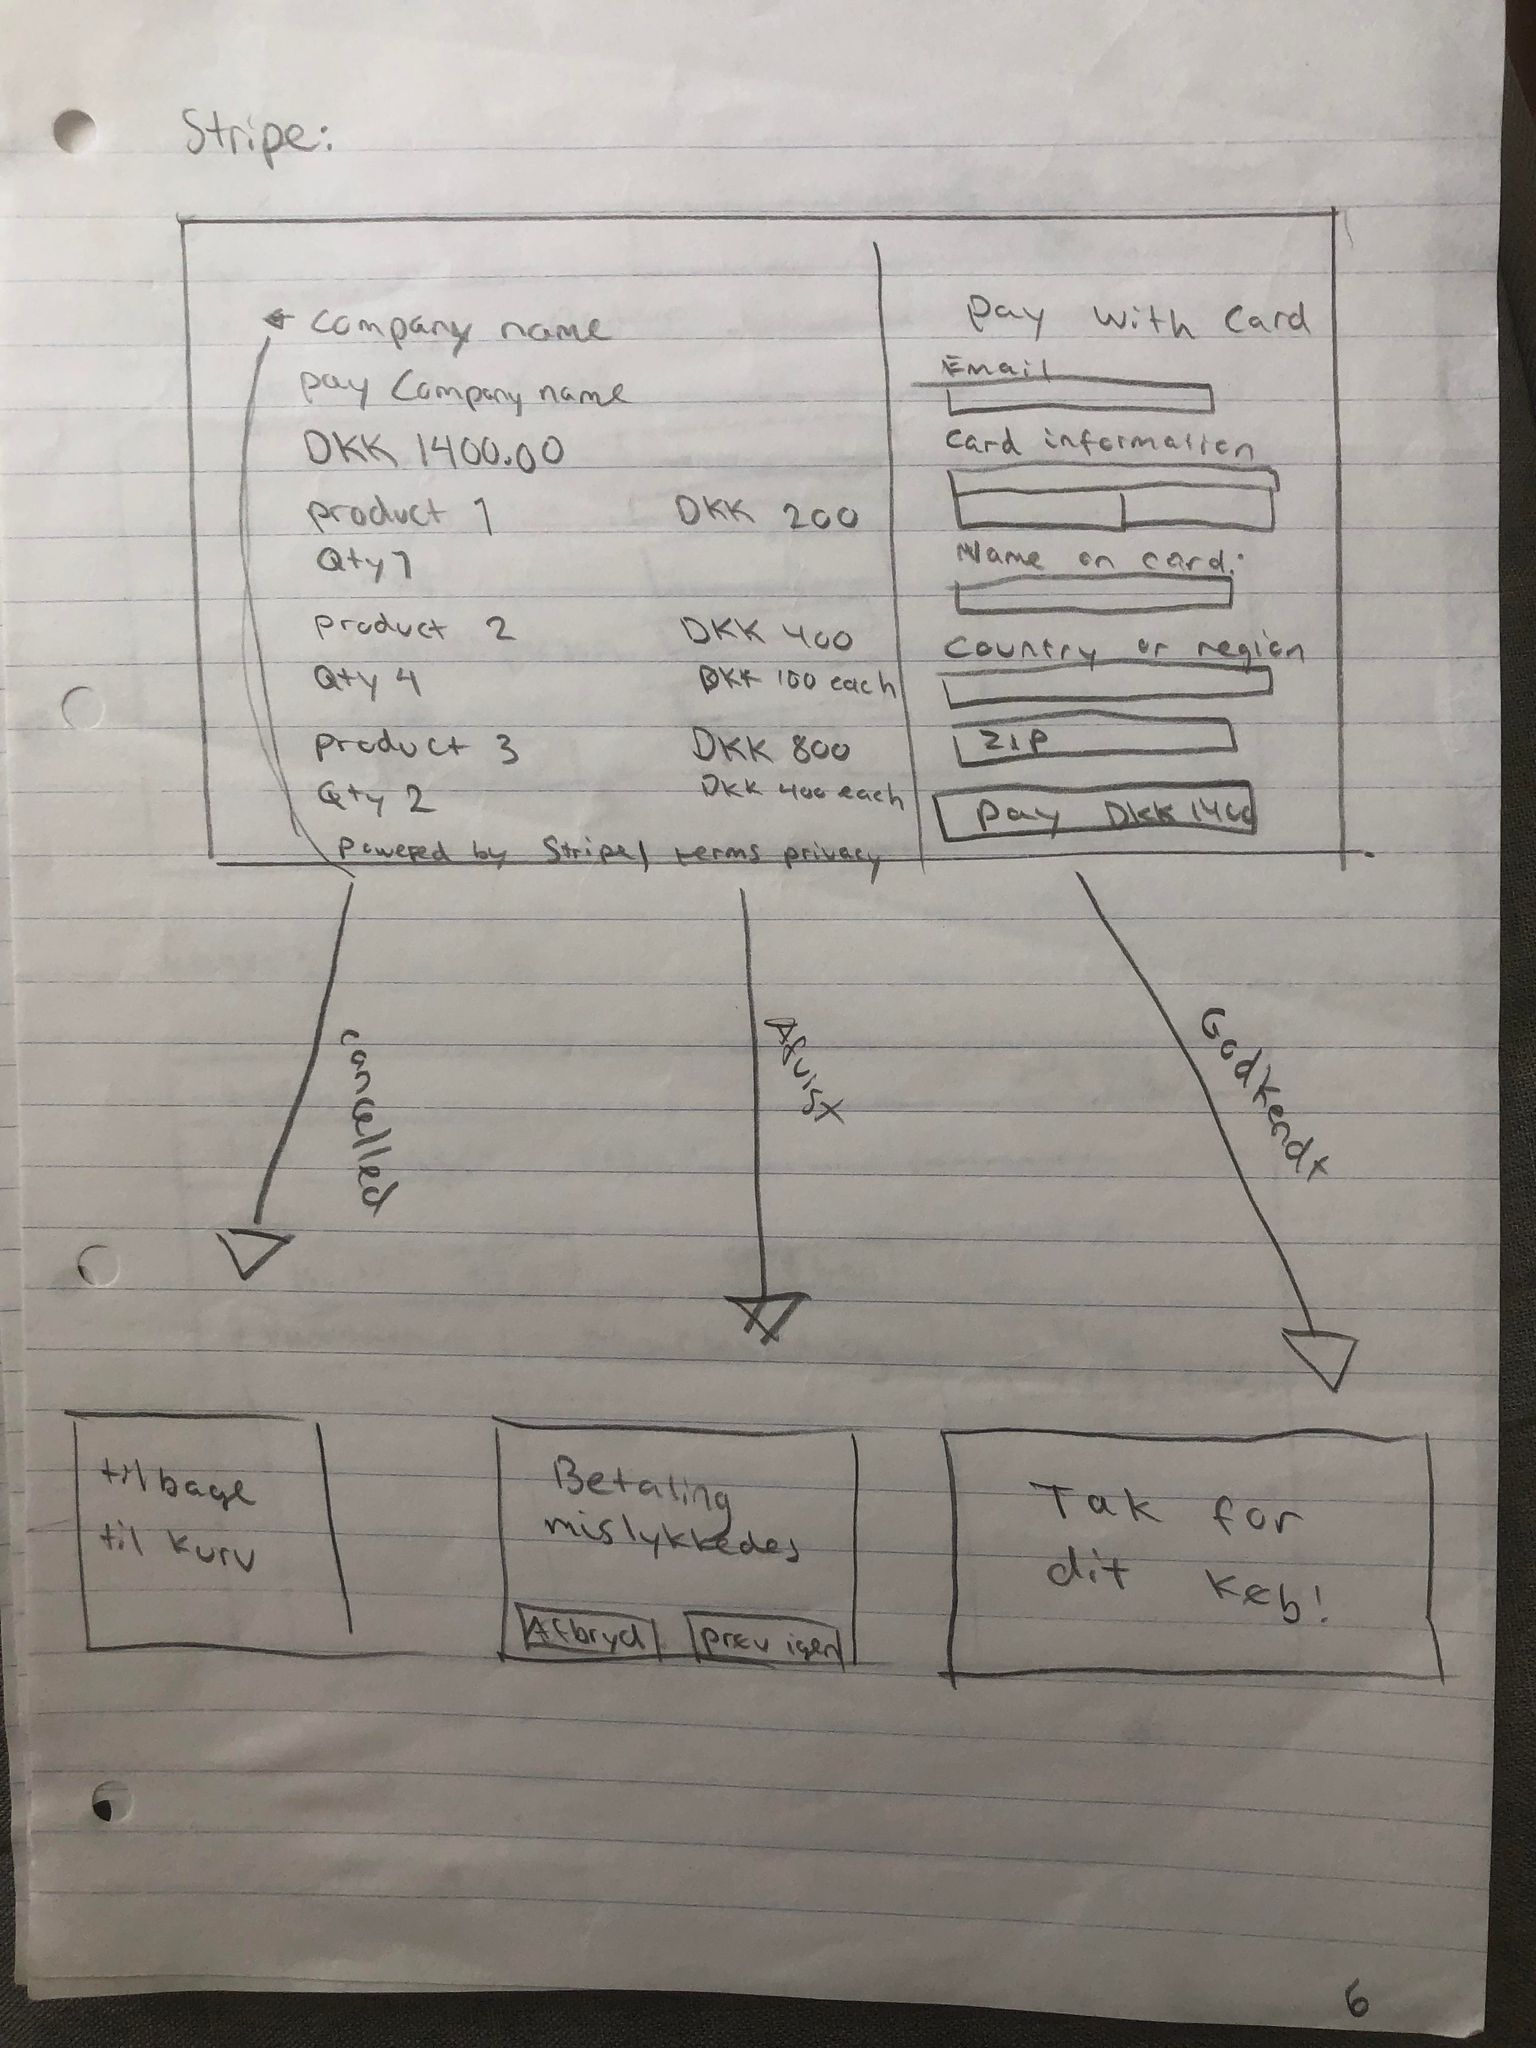 Stripe:
← Company name
pay Company name
DKK 1400.00
product 1 DKK 200
Qty 1
product 2 DKK 400
Qty 4 DKK 100 each
product 3 DKK 800
Qty 2 DKK 400 each
Powered by Stripe, terms privacy
pay with card
Email
Card information
Name on card:
Country or region
ZIP
pay DKK 1400
cancelled
Afvist
Godkendt
tilbage
til kurv
Betaling
mislykkedes
Afbryd prøv igen
Tak for
dit køb!
6